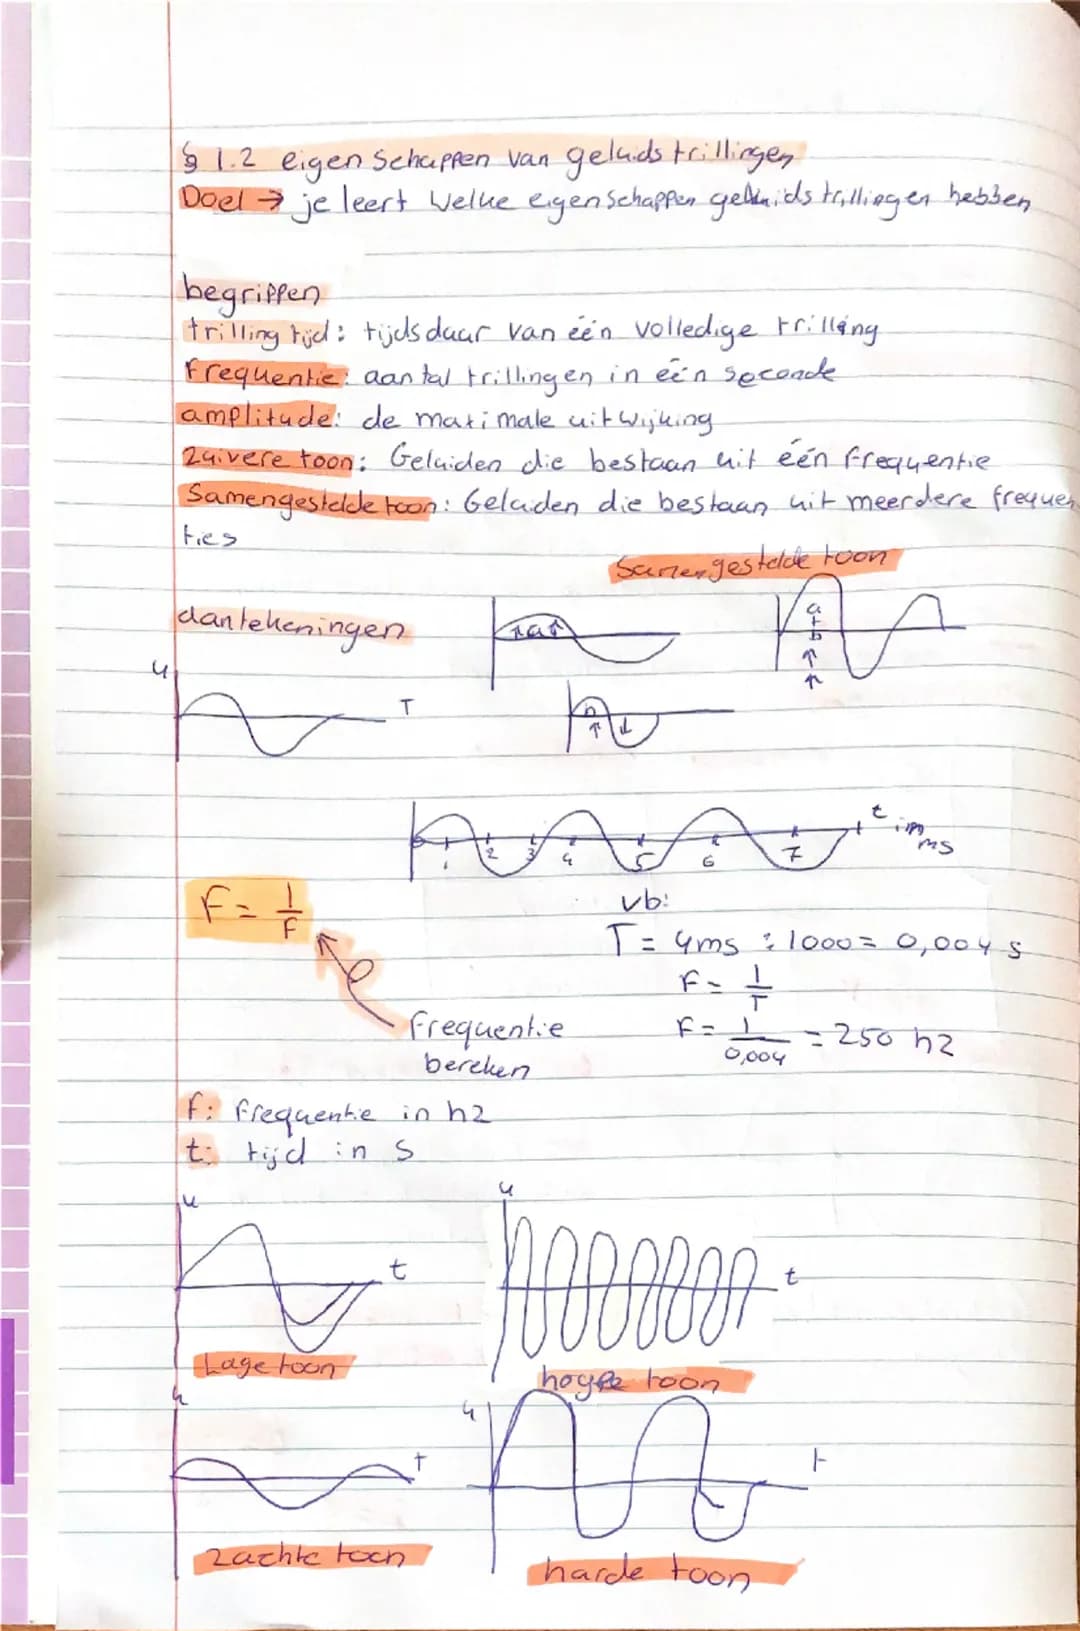 § 1.2 eigenschappen van geluidstrillingen
Doel → je leert welke eigenschappen geluidstrillingen hebben
begrippen
trilling tijd: tijdsdaur van één volledige trilling
frequentie: aantal trillingen in één seconde
amplitude: de maximale uitwijking
Zuivere toon: Geluiden die bestaan uit één frequentie
Samengestelde toon: Geluiden die bestaan uit meerdere frequen
ties
Samengestelde toon
aantekeningen
↑a↑
a+b
↑
↑
u
T
b
↑ ↓
t in ms
1 2 3 4 5 6 7
F = 1/F
vb:
T = 4ms : 1000 = 0,004 s
F = 1/T
F = 1/0,004 = 250 hz
frequentie
bereken
f: frequentie in hz
t: tijd in s
u
t
u
t
Lage toon
hoge toon
u
t
u
t
zachte toon
harde toon